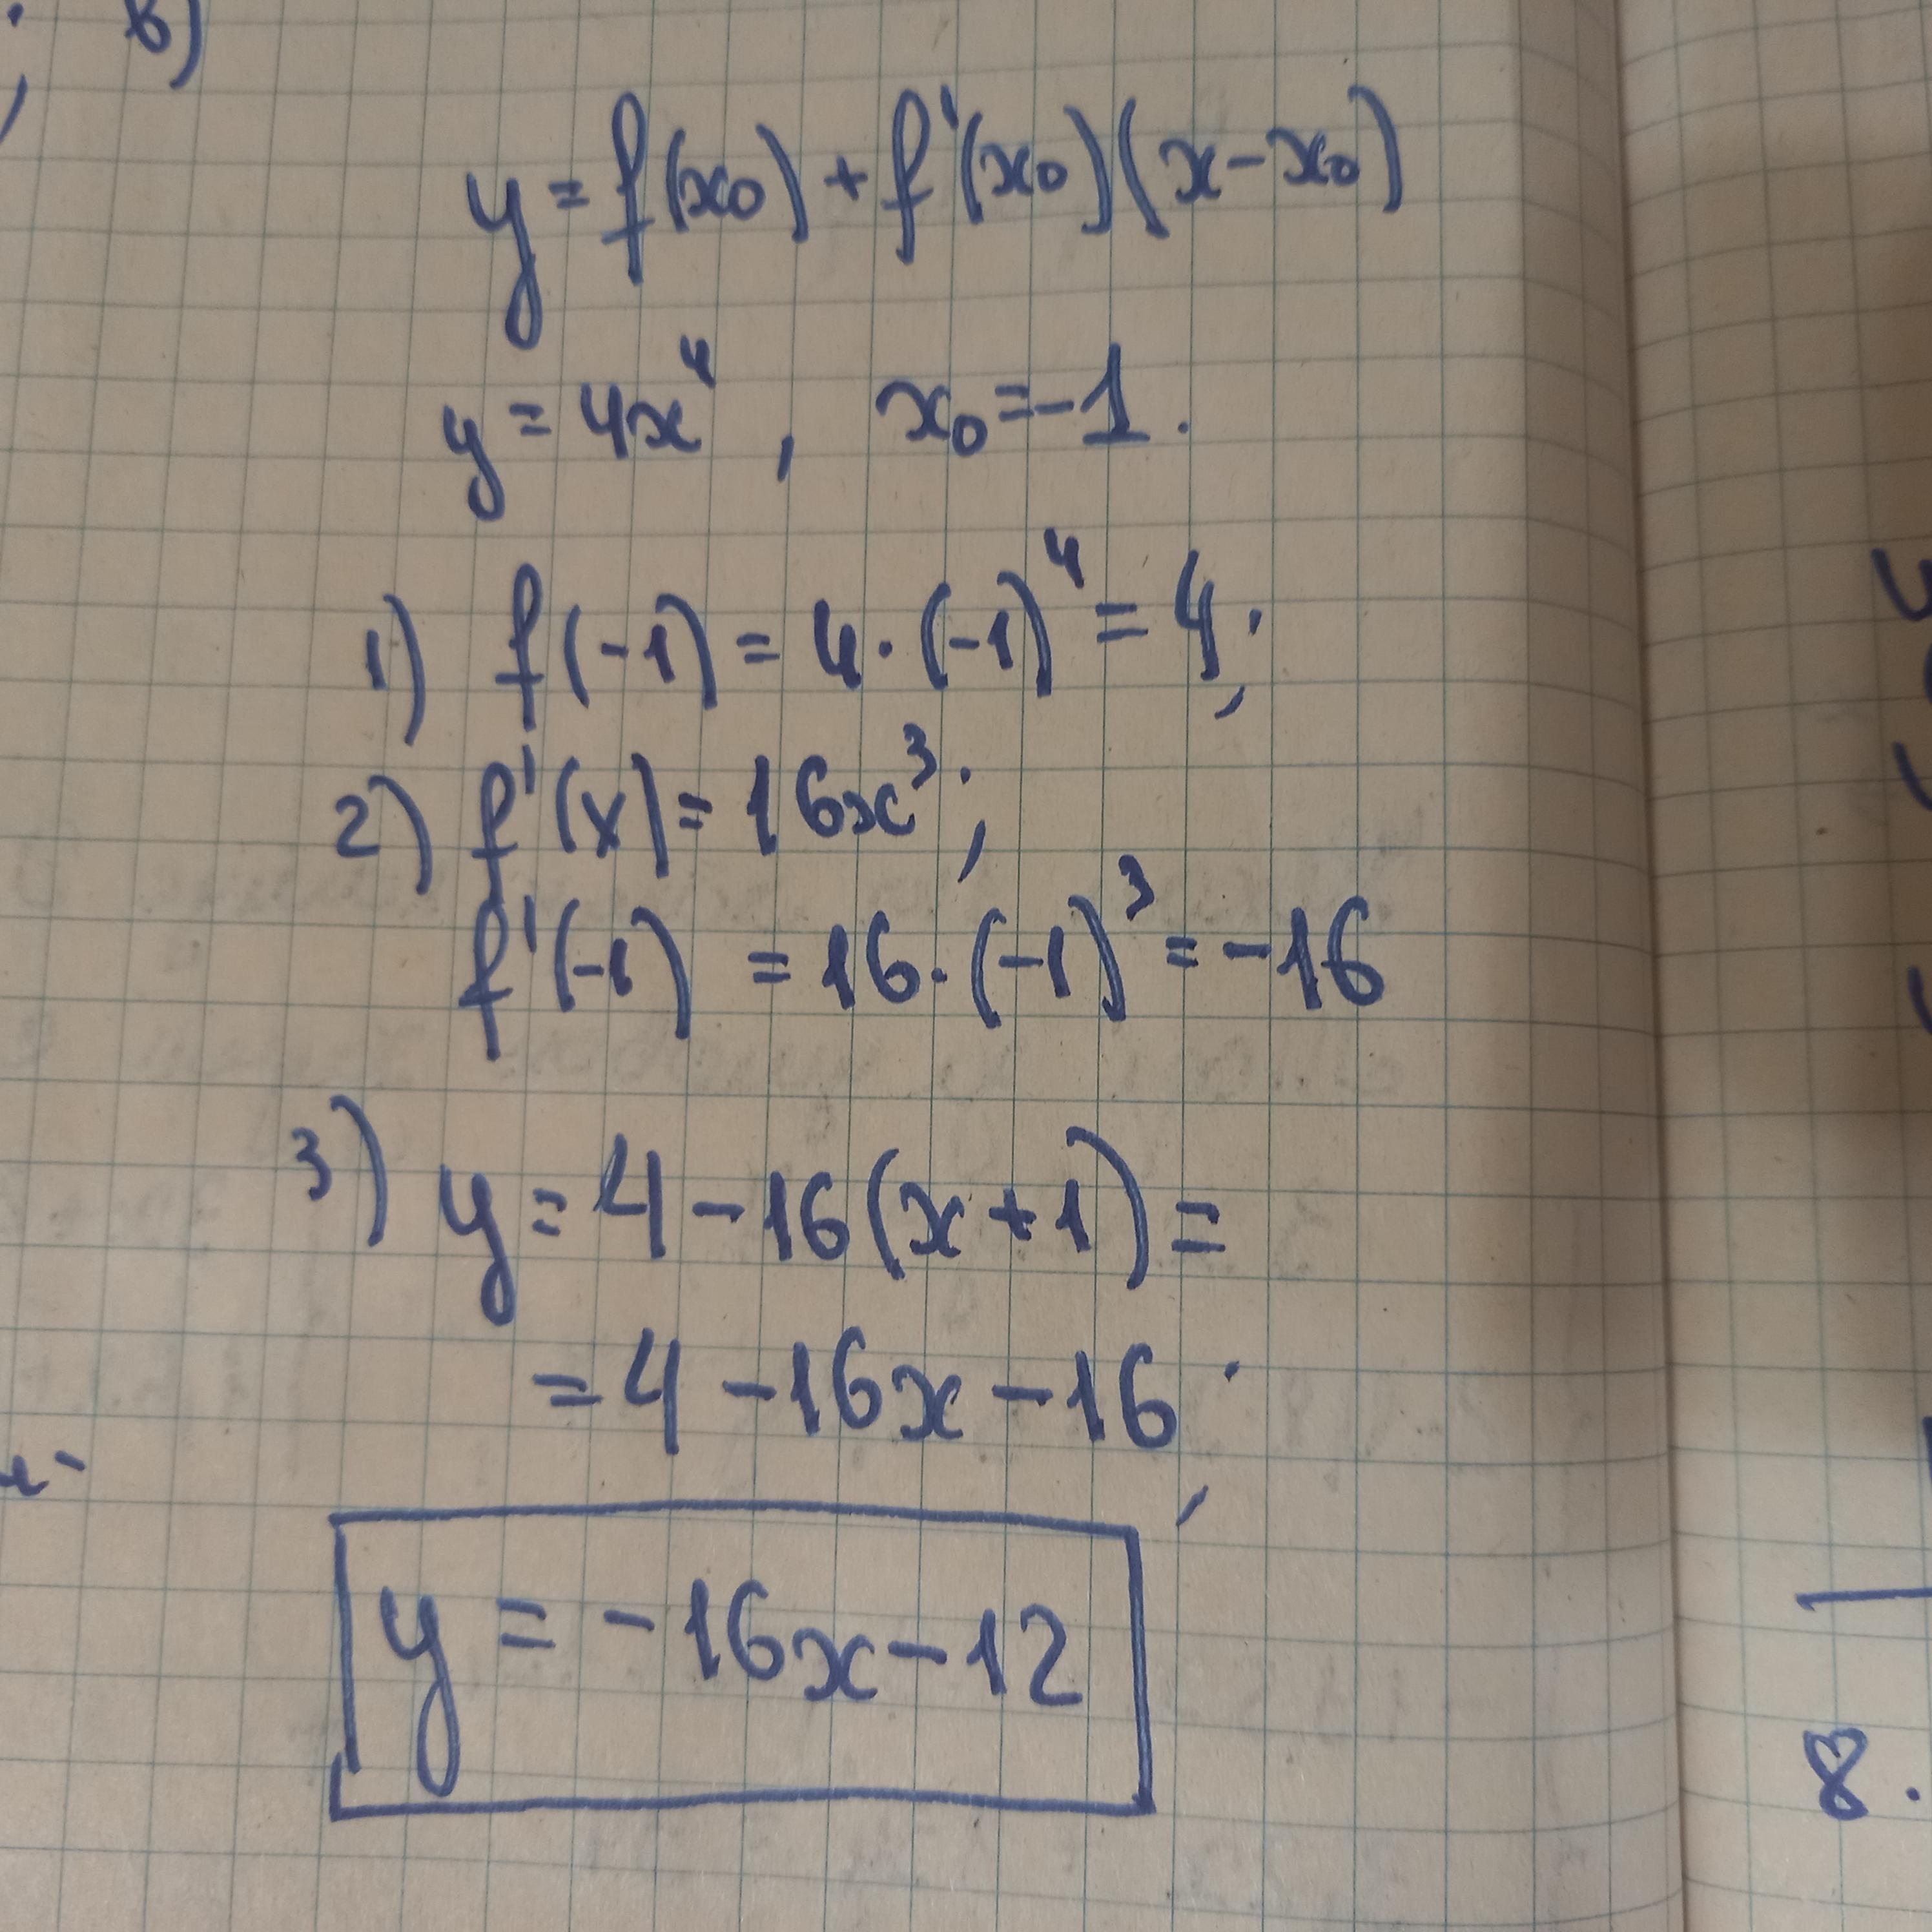 в)
y = f(x₀) + f'(x₀)(x - x₀)
y = 4x⁴, x₀ = -1.
1) f(-1) = 4·(-1)⁴ = 4;
2) f'(x) = 16x³;
f'(-1) = 16·(-1)³ = -16
3) y = 4 - 16(x + 1) =
= 4 - 16x - 16;
y = -16x - 12
8.